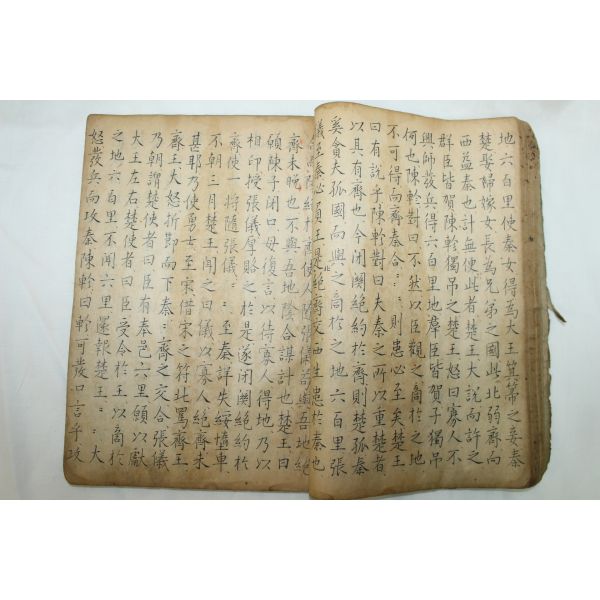 地六百里使秦女得爲大王箕箒之妾秦
楚娶婦嫁女長爲兄弟之國此北弱齊而
西益秦也計無便此者楚王大說而許之
群臣皆賀陳軫獨吊之楚王怒曰寡人不
興師發兵得六百里地羣臣皆賀子獨吊
何也陳軫對曰不然以臣觀之商於之地
不可得而齊秦合〻〻則患必至矣楚王
曰有說乎陳軫對曰夫秦之所以重楚者
以其有齊也今閉關絕約於齊則楚孤秦
奚貪夫孤國而與之商於之地六百里張
儀至秦必負王是北絕齊交西生患於秦也
使人隨張儀苟與吾地絕
齊未晚也不與吾地陰合謀計也楚王曰
願陳子閉口毋復言以待寡人得地乃以
相印授張儀厚賂之於是遂閉關絕約於
齊使一將隨張儀〻〻至秦詳失綏墮車
不朝三月楚王聞之曰儀以寡人絕齊未
甚耶乃使勇士至宋借宋之符北罵齊王
齊王大怒折節而下秦〻齊之交合張儀
乃朝謂楚使者曰臣有奉邑六里願以獻
大王左右楚使者曰臣受令於王以商於
之地六百里不聞六里還報楚王〻〻大
怒發兵而攻秦陳軫曰軫可發口言乎攻